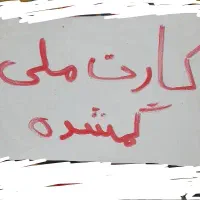 کارت ملی
گمشده